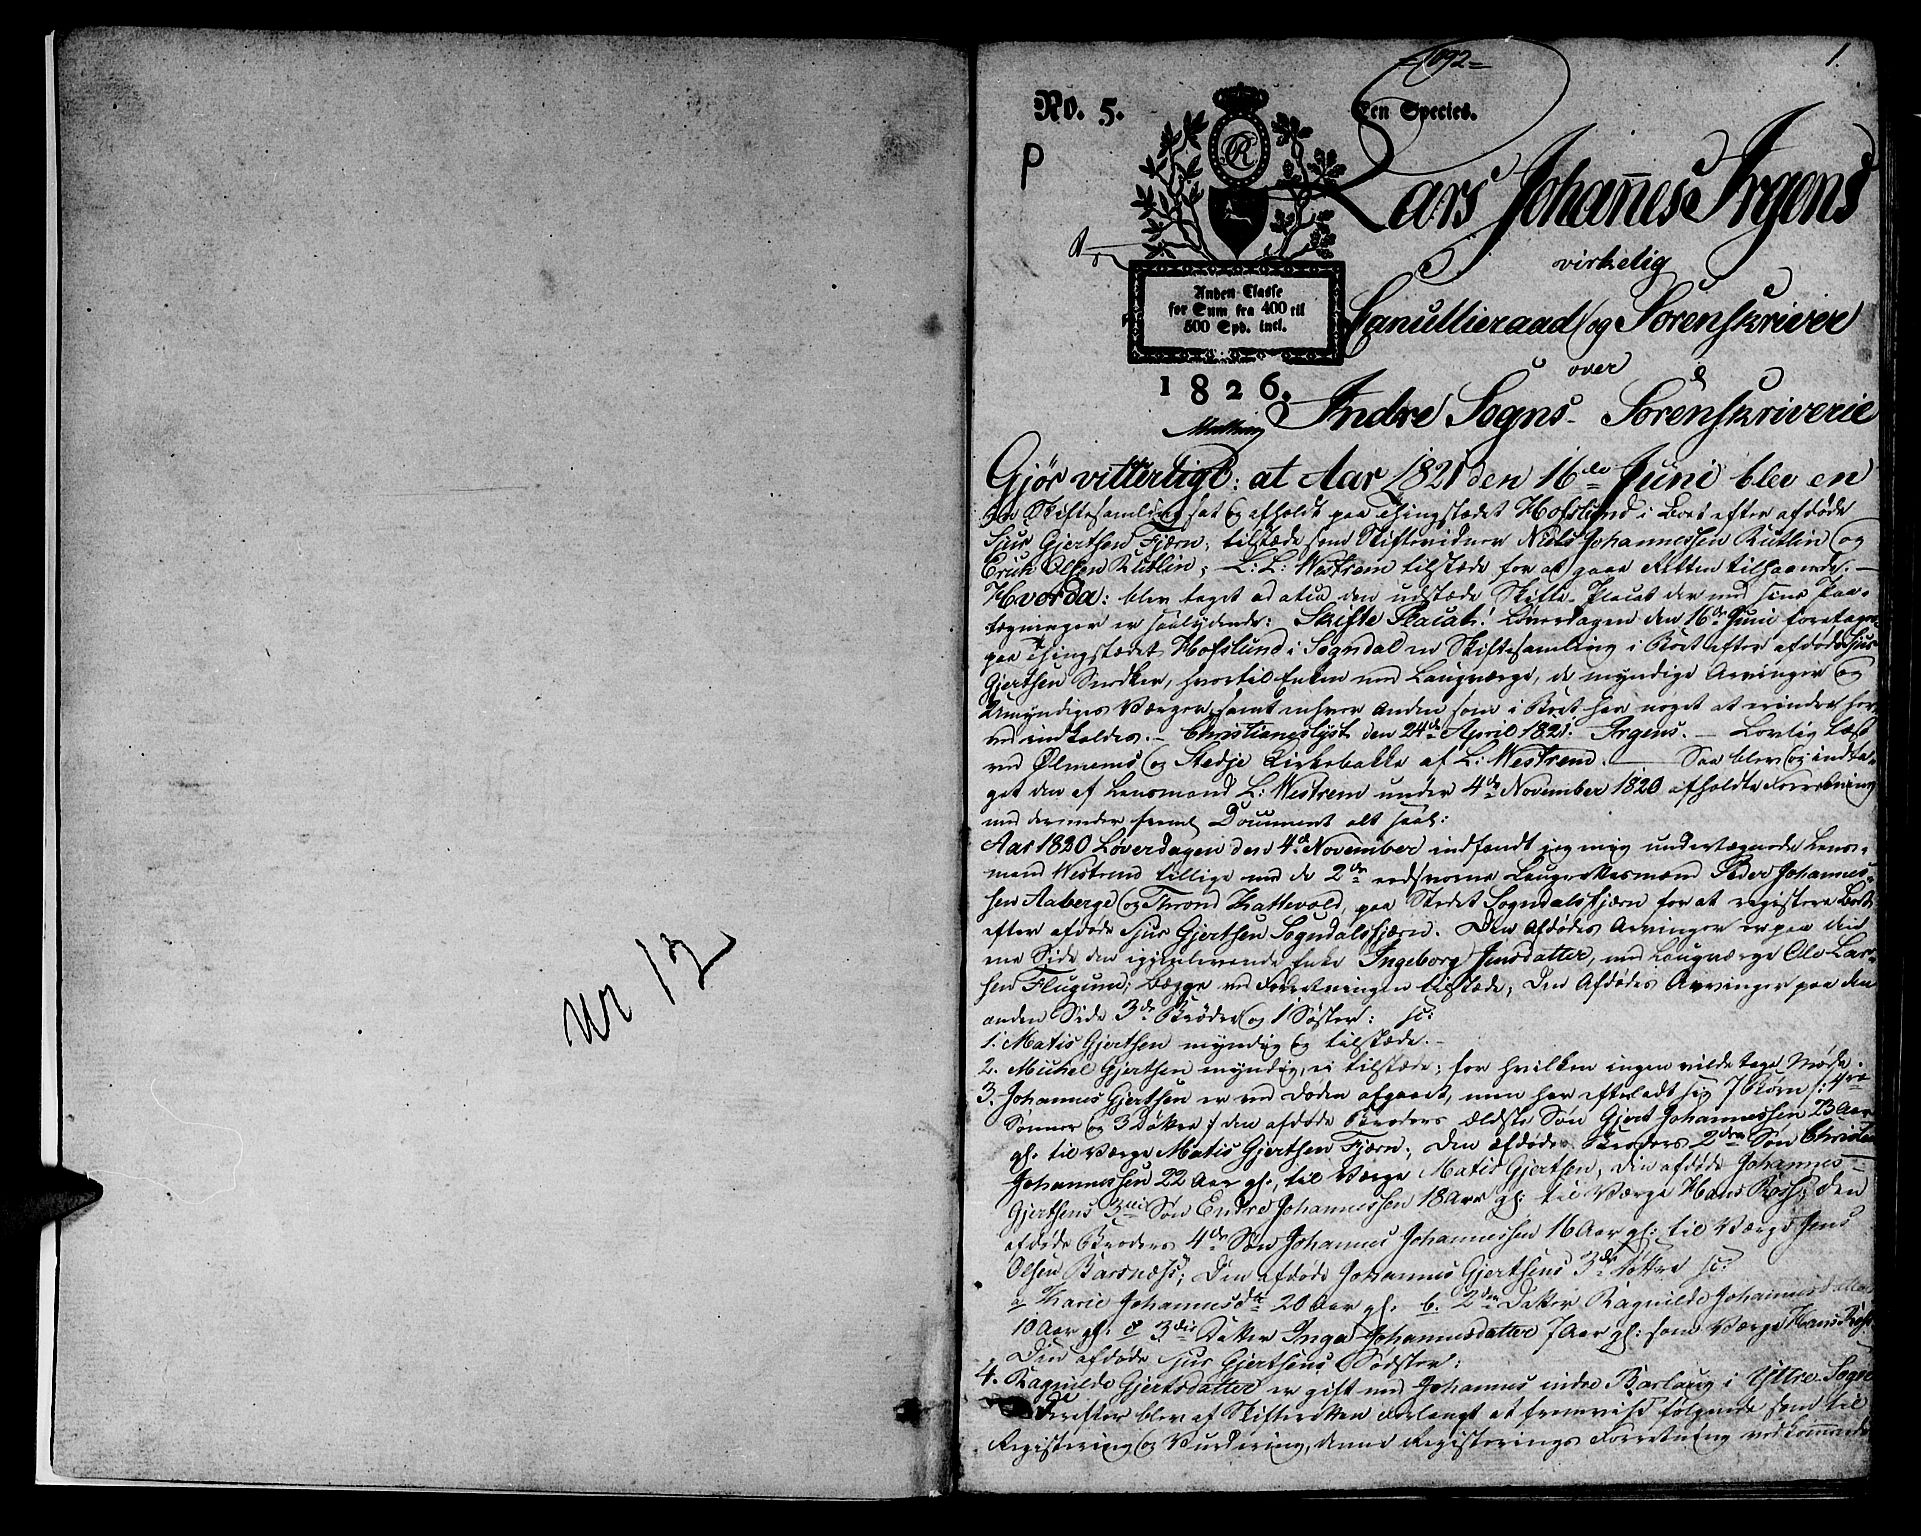 No 12
=1092=
1.
No. 5.
Een Species.
P
Lars Johannes Irgens
virkelig
Anden Classe
for Sum fra 400 til
500 Spd. incl.
Cancellieraad og Sorenskriver
over
1826.
Indre Sogns Sorenskriverie
Gjör vitterligt: at Aar 1821 den 16de Juni blev en
Skiftesamling sat og afholdt paa Thingstædet Hofslund i Boet efter afdøde
Sjur Gjerthsen Fjærn, tilstæde som Skiftevidner Niels Johannessen Kutlin og
Erich Olsen Kutlin; L: L: Westrem tilstæde for at gaae Retten tilhaande. —
Hvorda: blev taget ad acta den udstæde Skifte-Placat der med sine Paa-
tegninger er saalydende: Skifte Placat! Løverdagen den 16de Juni foretages
paa Thingstædet Hofslund i Sogndal en Skiftesamling i Boet efter afdøde Sjur
Gjerthsen, hvortil Enken med Laugværge, de myndige Arvinger og
Umyndiges Værger samt enhver Anden som i Boet har noget at erindre her-
ved indkaldes. — Christianeslyst den 24de April 1821. Irgens. — Lovlig læst
ved Ølmems og Stedje Kirkebakke af L: Westrem. — Saa blev og indta-
get den af Lensmand L: Westrem under 4de November 1820 afholdte Forretning
med derunder Document alt saal:
Aar 1820 Løverdagen den 4de November indfandt jeg mig undertegnede Lens-
mand Westrem tillige med de 2de edsvorne Laugrettesmænd Peder Johannes-
sen Aaberge og Thrond Kattevold, paa Stedet Sogndalsfjærn for at registere Boet
efter afdøde Sjur Gjerthsen Sogndalsfjærn. Den Afdødes Arvinger er paa den
ene Side den igjenlevende Enke Ingeborg Jensdatter, med Laugværge Ole Lar-
sen Flugum; begge ved Forretningen tilstæde; Den Afdødes Arvinger paa den
anden Side 3de Brødre og 1 Søster: sc:
1. Matis Gjerthsen myndig og tilstæde. —
2. Michel Gjerthsen myndig, ei tilstæde; for hvilken ingen vilde tage Møde.
3. Johannes Gjerthsen er ved Døden afgaaet, men har efterladt sig 7 Børn /: 4re
Sønner og 3 Døttre :/ den afdøde Broders ældste Søn Gjert Johannessen 23 Aar
gl. til Værge Matis Gjerthsen Fjærn; Den afdøde Broders 2den Søn Christen
Johannessen 22 Aar gl., til Værge Matis Gjerthsen; Den afdøde Johannes
Gjerthsens 3die Søn Endre Johannessen 18 Aar gl: til Værge Hans Røsh; Den
afdøde Broders 4de Søn Johannes Johannessen 16 Aar gl: til Værge Jens
Olsen Barsnæss; Den afdøde Johannes Gjerthsens 3de Døttre sc:
a Karie Johannesdtr 20 Aar gl. b. 2den Datter Ragnilde Johannesdatter
10 Aar gl. c 3die Datter Inga Johannesdatter 7 Aar gl: som Værge Hans Røsh
Den afdøde Sjur Gjerthsens Sødster:
4. Ragnilde Gjertsdatter er gift med Johannes indre Barlaug i Yttre Sogn
Derefter blev af Skifteretten forlangt at fremviise følgende som til
Registering og Vurdering, denne Registerings Forretning vedkommende